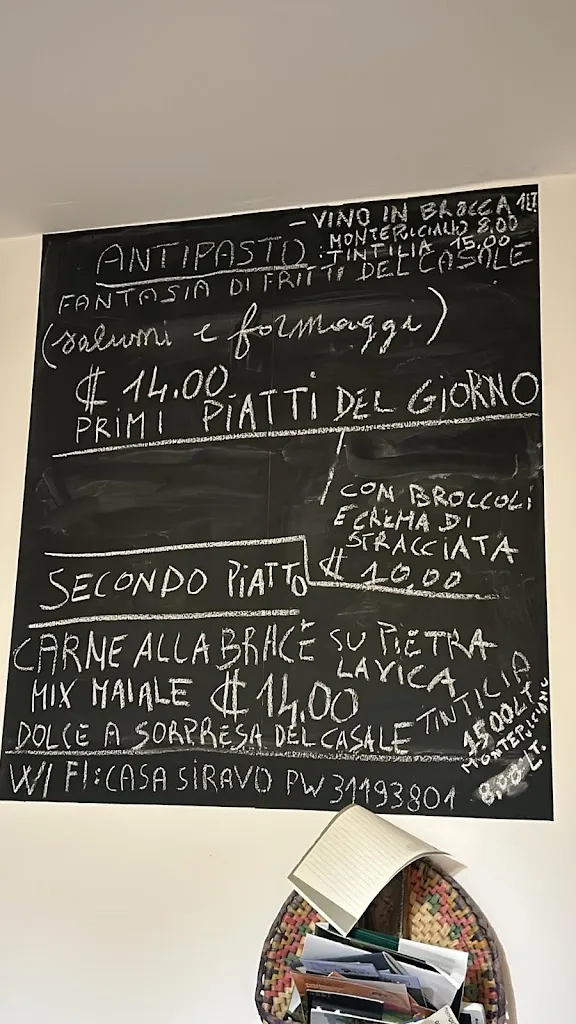 - VINO IN BROCCA 1LT
MONTEPULCIANO 8,00
: TINTILIA 15,00
ANTIPASTO
FANTASIA DI FRITTI DEL CASALE
(salumi e formaggi)
₵ 14.00
PRIMI PIATTI DEL GIORNO
CON BROCCOLI
E CREMA DI
STRACCIATA
₵ 10,00
SECONDO PIATTO
CARNE ALLA BRACE SU PIETRA
LAVICA
MIX MAIALE ₵ 14.00
DOLCE A SORPRESA DEL CASALE
TINTILIA
1500 LT.
MONTEPULCIANO
8,00 LT.
WI FI: CASA SIRAVO PW 31193801